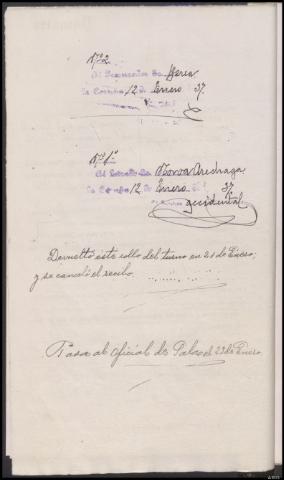 Nº 2
Al Procurador Sr. Berea
La Coruña 12 de Enero 37.
Nº 1º
Al Letrado Sr. Moroa Arechaga
La Coruña 12 de Enero 37
accidental.
Devueltó este rollo del turno en 21 de Enero;
y se canceló el recibo.
Pasa al Oficial de Sala el 22 de Enero.